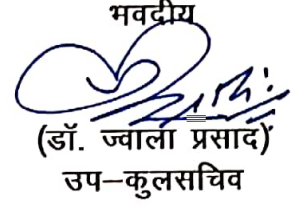 भवदीय
(डॉ. ज्वाला प्रसाद)
उप–कुलसचिव